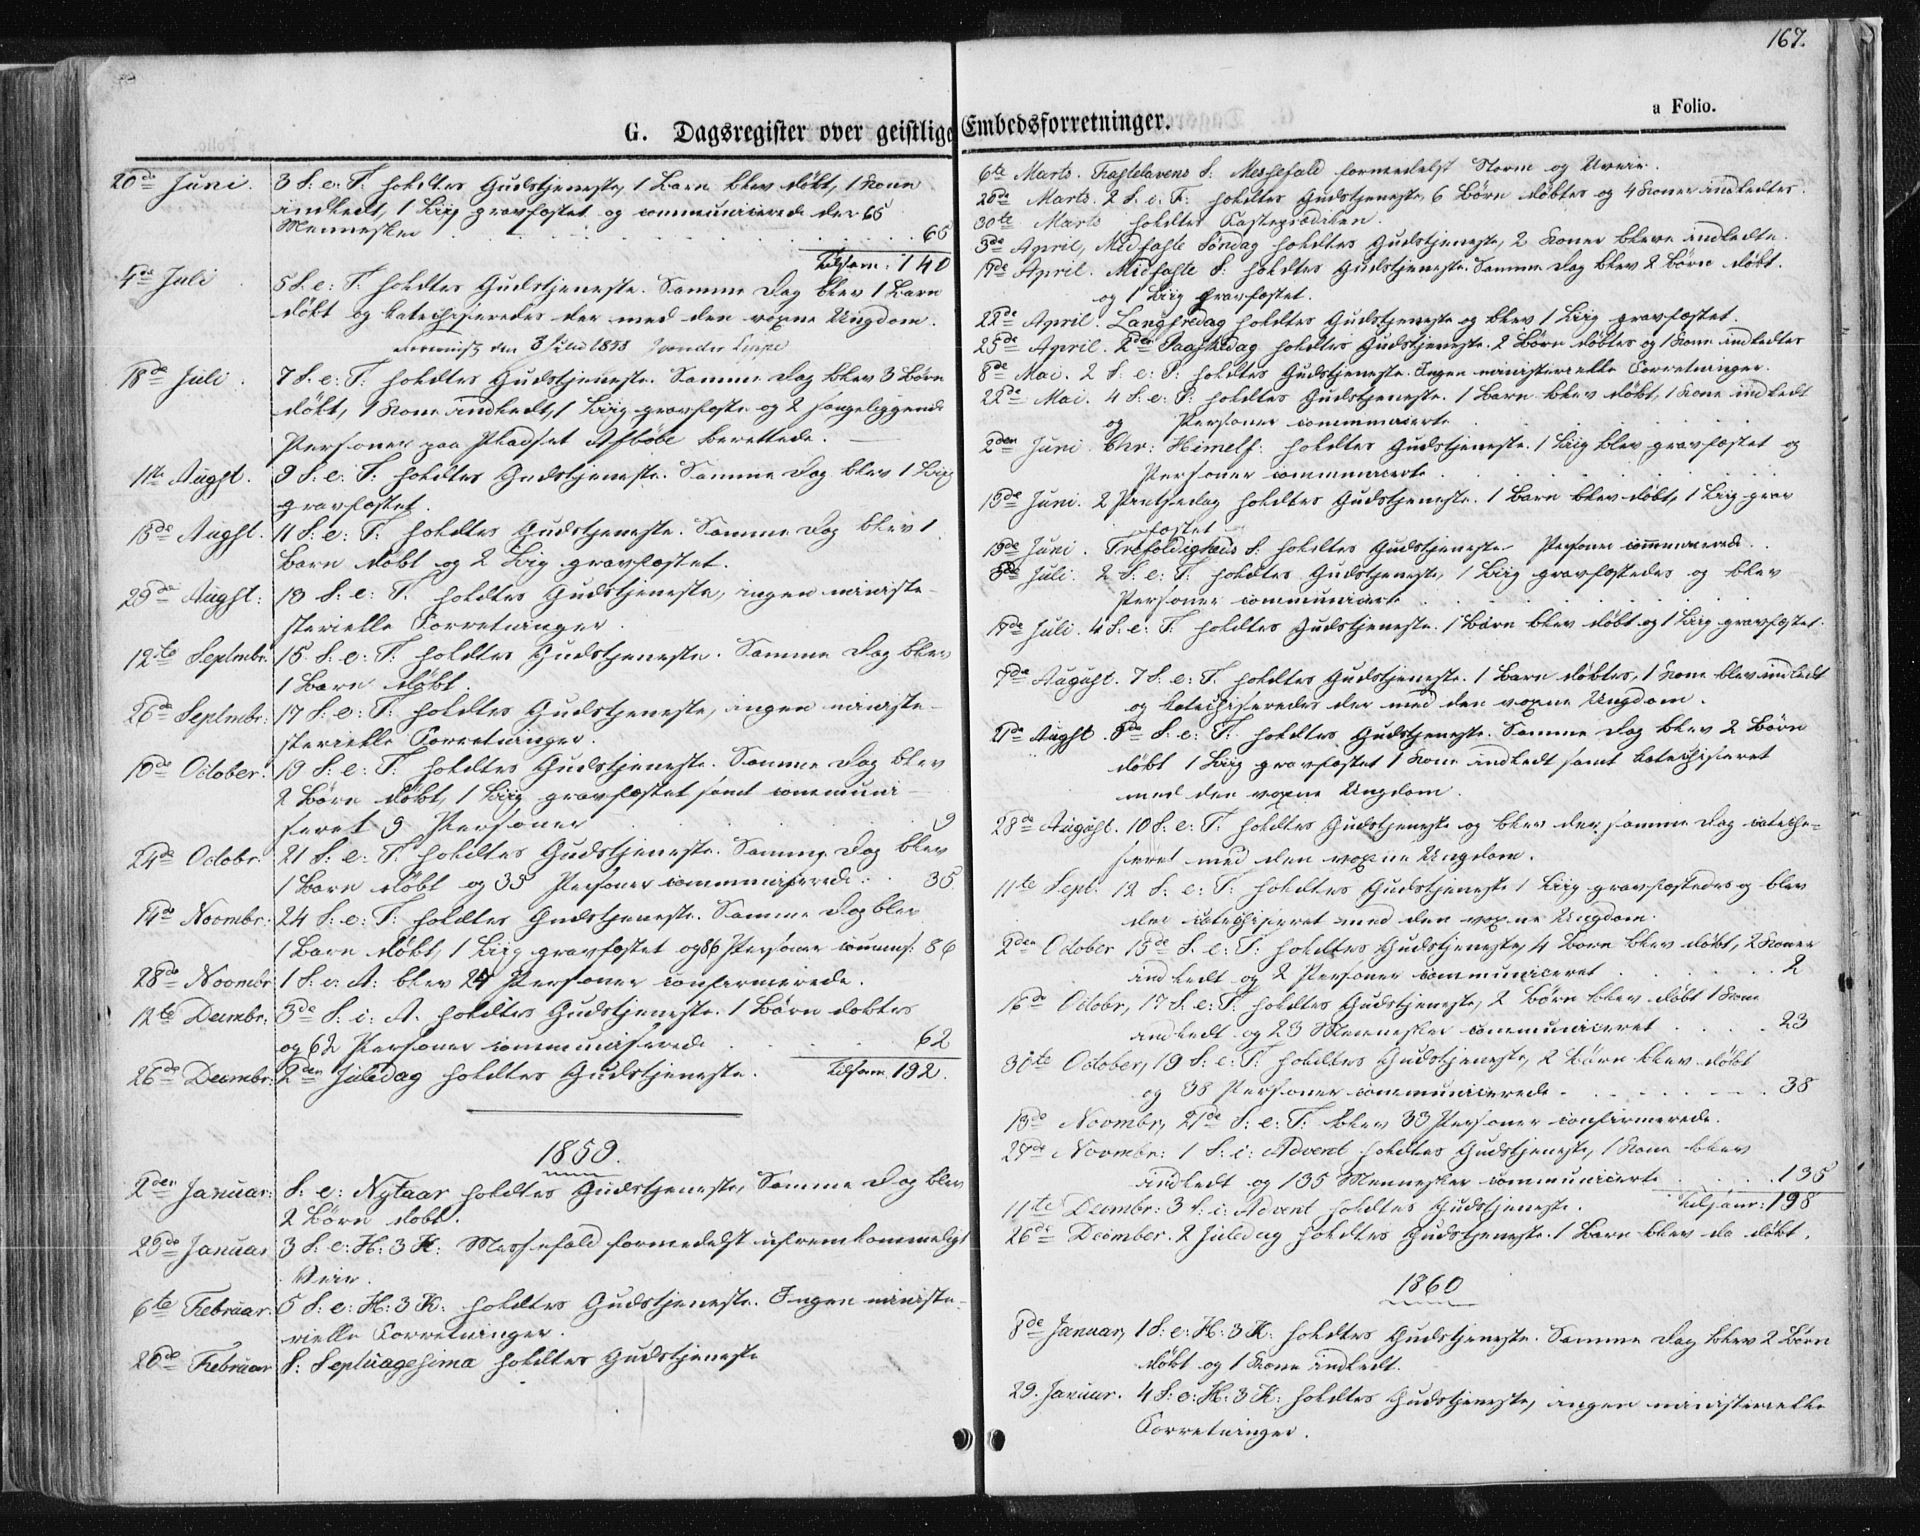 167.
a Folio.
G. Dagsregister over geistlige Embedsforretninger.
20de Juni. 3 S: e: T: holdtes Gudstjeneste, 1 Barn blev døbt, 1 Kone
indledt, 1 Liig gravfæstet og communicerede der 65
Mennesker . . . 65
Tilsam: 140
4de Juli 5 S. e: T: holdtes Gudstjeneste. Samme Dag blev 1 Barn
døbt og katechiseredes der med den voxne Ungdom.
den 3 Juli 1858
18de Juli. 7 S. e: T: holdtes Gudstjeneste. Samme Dag blev 3 Børn
døbt, 1 Kone indledt, 1 Liig gravfæste og 2 sengeliggende
Personer paa Pladset berettede.
Augst. 9 S. e: T: holdtes Gudstjeneste. Samme Dag blev 1 Liig
gravfæstet.
15de Augst. 11 S: e: T: holdtes Gudstjeneste. Samme Dag blev 1
Barn døbt og 2 Liig gravfæstet.
29de Augst: 13 S: e: T. holdtes Gudstjeneste, ingen ministe-
sterielle Forretninger.
12te Septmbr: 15 S: e: T: holdtes Gudstjeneste. Samme Dag blev
1 Barn døbt.
26de Septmbr: 17 S: e: T: holdtes Gudstjeneste, ingen ministe-
sterielle Forretninger.
10de October: 19 S: e: T: holdtes Gudstjeneste. Samme Dag blev
2 Børn døbt, 1 Liig gravfæstet samt communi-
seret 9 Personer . . . 9
24de Octobr: 21 S: e: T: holdtes Gudstjeneste. Samme Dag blev
1 Barn døbt og 35 Personer communiserede: . 35
14de Novmbr: 24 S: e: T: holdtes Gudstjeneste. Samme Dag blev
1 Barn døbt, 1 Liig gravfæstet og 86 Personer commns: 86
28de Novmbr 1 S: e: A: blev 24 Personer confirmerede.
12te Decmbr: 3de S: i: A. holdtes Gudstjeneste. 1 Børn døbtes
og 62 Personer communiserede . . . 62
26de Decmbr: 2den Juledag holdtes Gudstjeneste. Tilsam. 192.
1859.
2den Januar: S: e: Nytaar holdtes Gudstjeneste, Samme Dag blev
2 Børn døbt.
Januar 3 S: e: H: 3 K: Messefald formedelst ufremkommeligt
Veir.
6te Februar: 5 S: e: H: 3 K: holdtes Gudstjeneste. Ingen ministe-
rielle Forretninger.
20de Februar S: Septuagesima holdtes Gudstjeneste
6te Marts. Fastelavens S: Messefald formedelst Storm og Uveir.
20de Marts. 2 S. i: F: holdtes Gudstjeneste, 6 Børn døbtes og 4 Koner indledtes.
30te Marts holdtes Fasteprædiken.
3de April, Midfaste Søndag holdtes Gudstjeneste, 2 Koner bleve indledte.
17de April. Midfaste S: holdtes Gudstjeneste. Samme Dag blev 2 Børn døbt.
og 1 Liig Gravfæstet.
22de April. Langfredag holdtes Gudstjeneste og blev 1 Liig gravfæstet.
25de April. 2den Paaskedag holdtes Gudstjeneste. 2 Børn døbtes og 1 Kone indledtes
8de Mai. 2 S: e: P: holdtes Gudstjeneste. Ingen ministerielle Forretninger.
22de Mai. 4 S: e: P: holdtes Gudstjeneste. 1 Barn blev døbt, 1 Kone indledt
og Personer communicerte . . .
2den Juni Chr: Himelf: holdtes Gudstjeneste. 1 Liig blev gravfæstet og
Personer communicerte . . .
13de Juni. 2 Pintsedag holdtes Gudstjeneste. 1 Barn blev døbt, 1 Liig grav
fæstet
19de Juni. Trefoldigheds S: holdtes Gudstjeneste Personer communicerede . .
Juli. 2 S: e: T: holdtes Gudstjeneste, 1 Liig gravfæstedes og blev
Personer communicerte . . .
17de Juli. 4 S: e: T: holdtes Gudstjeneste. 1 Børn blev døbt og 1 Liig gravfæstet.
7de August. 7 S: e: T. holdtes Gudstjeneste. 1 Barn døbtes, 1 Kone blev indledt
og katechiseredes der med den voxne Ungdom.
21de Augst. 9de S: e: T: holdtes Gudstjeneste. Samme Dag blev 2 Børn
døbt 1 Liig gravfæstet 1 Kone indledt samt katechiseret
med den voxne Ungdom.
28de August. 10 S: e: T: holdtes Gudstjeneste og blev der samme Dag cateche-
seret med den voxne Ungdom.
11te Sept: 12 S: e: T: holdtes Gudstjeneste 1 Liig gravfæstedes og blev
der catechiseret med den voxne Ungdom.
2den October 15de S. e: T: holdtes Gudstjeneste, 4 Børn blev døbt, 2 Koner
indledt og 2 Personer communiceret . . . 2
16de Octobr, 17 S. e: T: holdtes Gudstjeneste, 2 Børn blev døbt 1 Kone
indledt og 23 Mennesker communiceret . . . 23
30te October, 19 S. e: T: holdtes Gudstjeneste, 2 Børn blev døbt
og 38 Personer communicerede . . . 38
13de Novmbr, 21de S: e: T: blev 33 Personer confirmerede.
27de Novmbr: 1 S: i: Advent holdtes Gudstjeneste, 1 Kone blev
indledt og 135 Mennesker communicerte . . . 135
11te Decmbr: 3 S: i: Advent holdtes Gudstjeneste. Tilsam: 198
26de December. 2 Juledag holdtes Gudstjeneste. 1 Barn blev da døbt.
1860
8de Januar, 1 S: e: H: 3 K: holdtes Gudstjeneste. Samme Dag blev 2 Børn
døbt og 1 Kone indledt.
29. Januar. 4 S: e: H: 3 K: holdtes Gudstjeneste, ingen ministerielle
Forretninger.